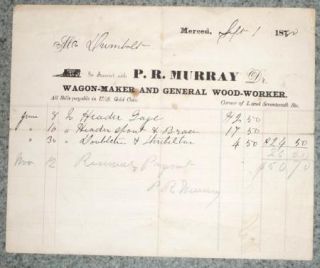 Merced, Sept 1 18
Mr
In Account with P. R. MURRAY Dr.
WAGON-MAKER AND GENERAL WOOD-WORKER.
All Bills payable in U.S. Gold Coin. Corner of L and Seventeenth Sts.
June 8 Header $2 50
" 10 " Header Spout & 17 50
" 30 " Doubletree & 4 50 $24 50
Nov 12 Received Payment
P. R. Murray